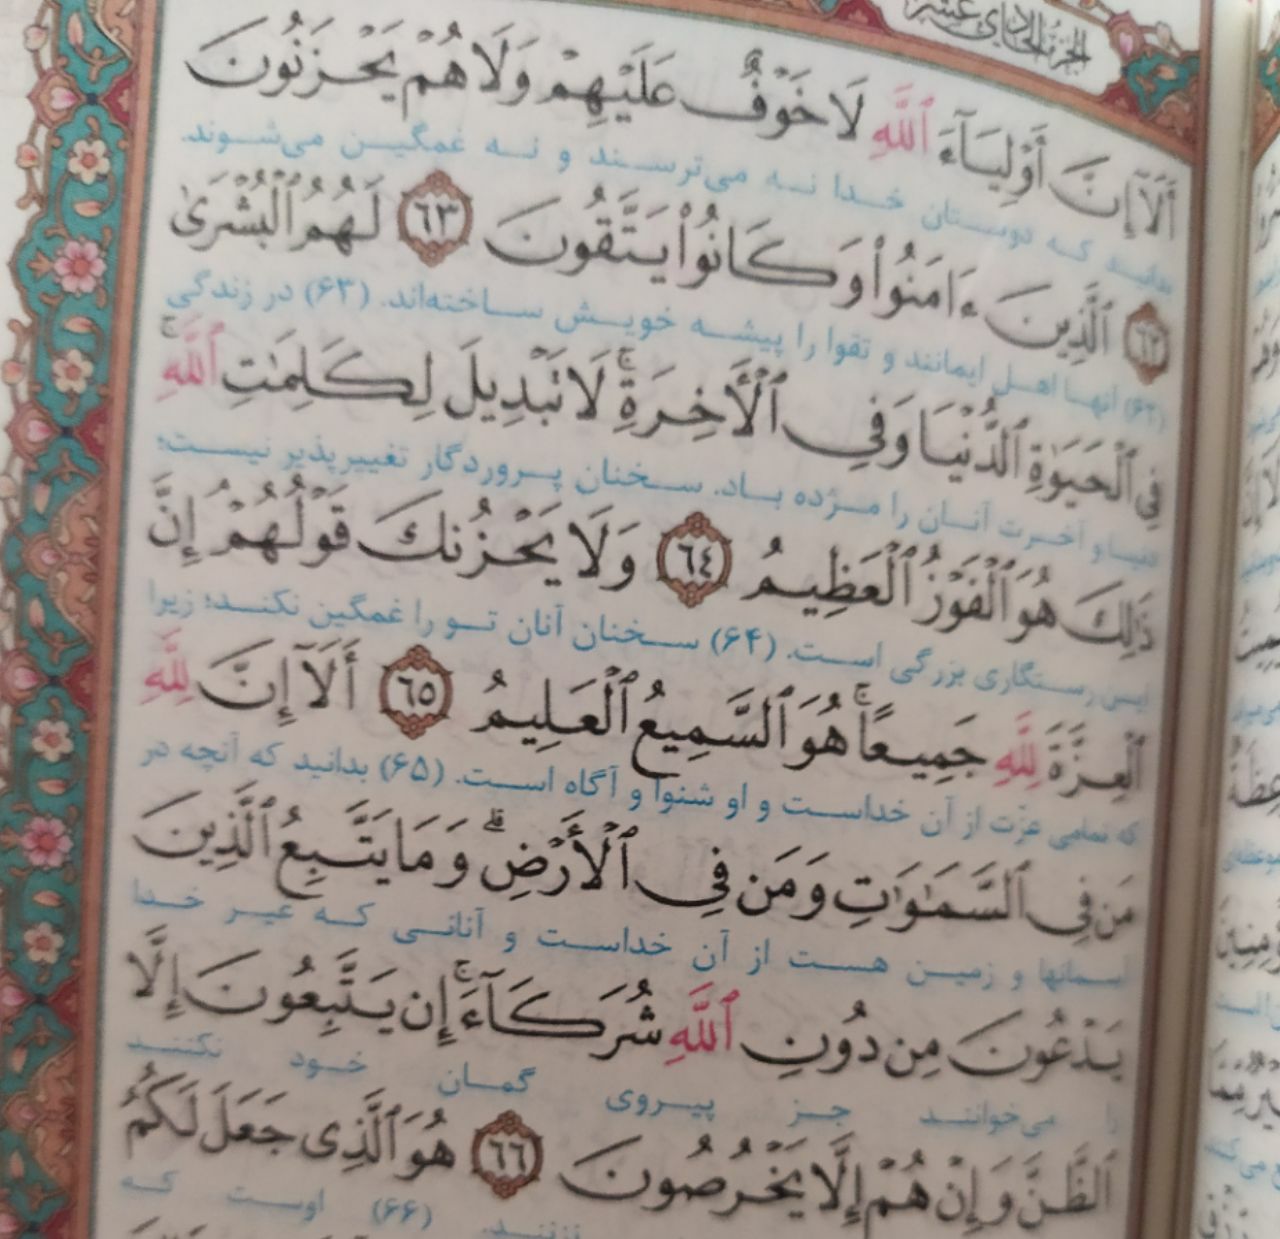 الجزء الحادي عشر
أَلَآ إِنَّ أَوْلِيَآءَ ٱللَّهِ لَا خَوْفٌ عَلَيْهِمْ وَلَا هُمْ يَحْزَنُونَ
بدانید که دوستان خدا نه می‌ترسند و نه غمگین می‌شوند.
٦٢ ٱلَّذِينَ ءَامَنُوا۟ وَكَانُوا۟ يَتَّقُونَ ٦٣ لَهُمُ ٱلْبُشْرَىٰ
(۶۲) آنها اهل ایمانند و تقوا را پیشه خویش ساخته‌اند. (۶۳) در زندگی
فِى ٱلْحَيَوٰةِ ٱلدُّنْيَا وَفِى ٱلْأَخِرَةِ ۚ لَا تَبْدِيلَ لِكَلِمَٰتِ ٱللَّهِ ۚ
دنیا و آخرت آنان را مژده باد. سخنان پروردگار تغییرپذیر نیست؛
ذَٰلِكَ هُوَ ٱلْفَوْزُ ٱلْعَظِيمُ ٦٤ وَلَا يَحْزُنكَ قَوْلُهُمْ ۘ إِنَّ
این رستگاری بزرگی است. (۶۴) سخنان آنان تو را غمگین نکند؛ زیرا
ٱلْعِزَّةَ لِلَّهِ جَمِيعًا ۚ هُوَ ٱلسَّمِيعُ ٱلْعَلِيمُ ٦٥ أَلَآ إِنَّ لِلَّهِ
که تمامی عزت از آن خداست و او شنوا و آگاه است. (۶۵) بدانید که آنچه در
مَن فِى ٱلسَّمَٰوَٰتِ وَمَن فِى ٱلْأَرْضِ ۗ وَمَا يَتَّبِعُ ٱلَّذِينَ
آسمانها و زمین هست از آن خداست و آنانی که غیر خدا
يَدْعُونَ مِن دُونِ ٱللَّهِ شُرَكَآءَ ۚ إِن يَتَّبِعُونَ إِلَّا
را می‌خوانند جز پیروی گمان خود نکنند
ٱلظَّنَّ وَإِنْ هُمْ إِلَّا يَخْرُصُونَ ٦٦ هُوَ ٱلَّذِى جَعَلَ لَكُمُ
(۶۶) اوست که